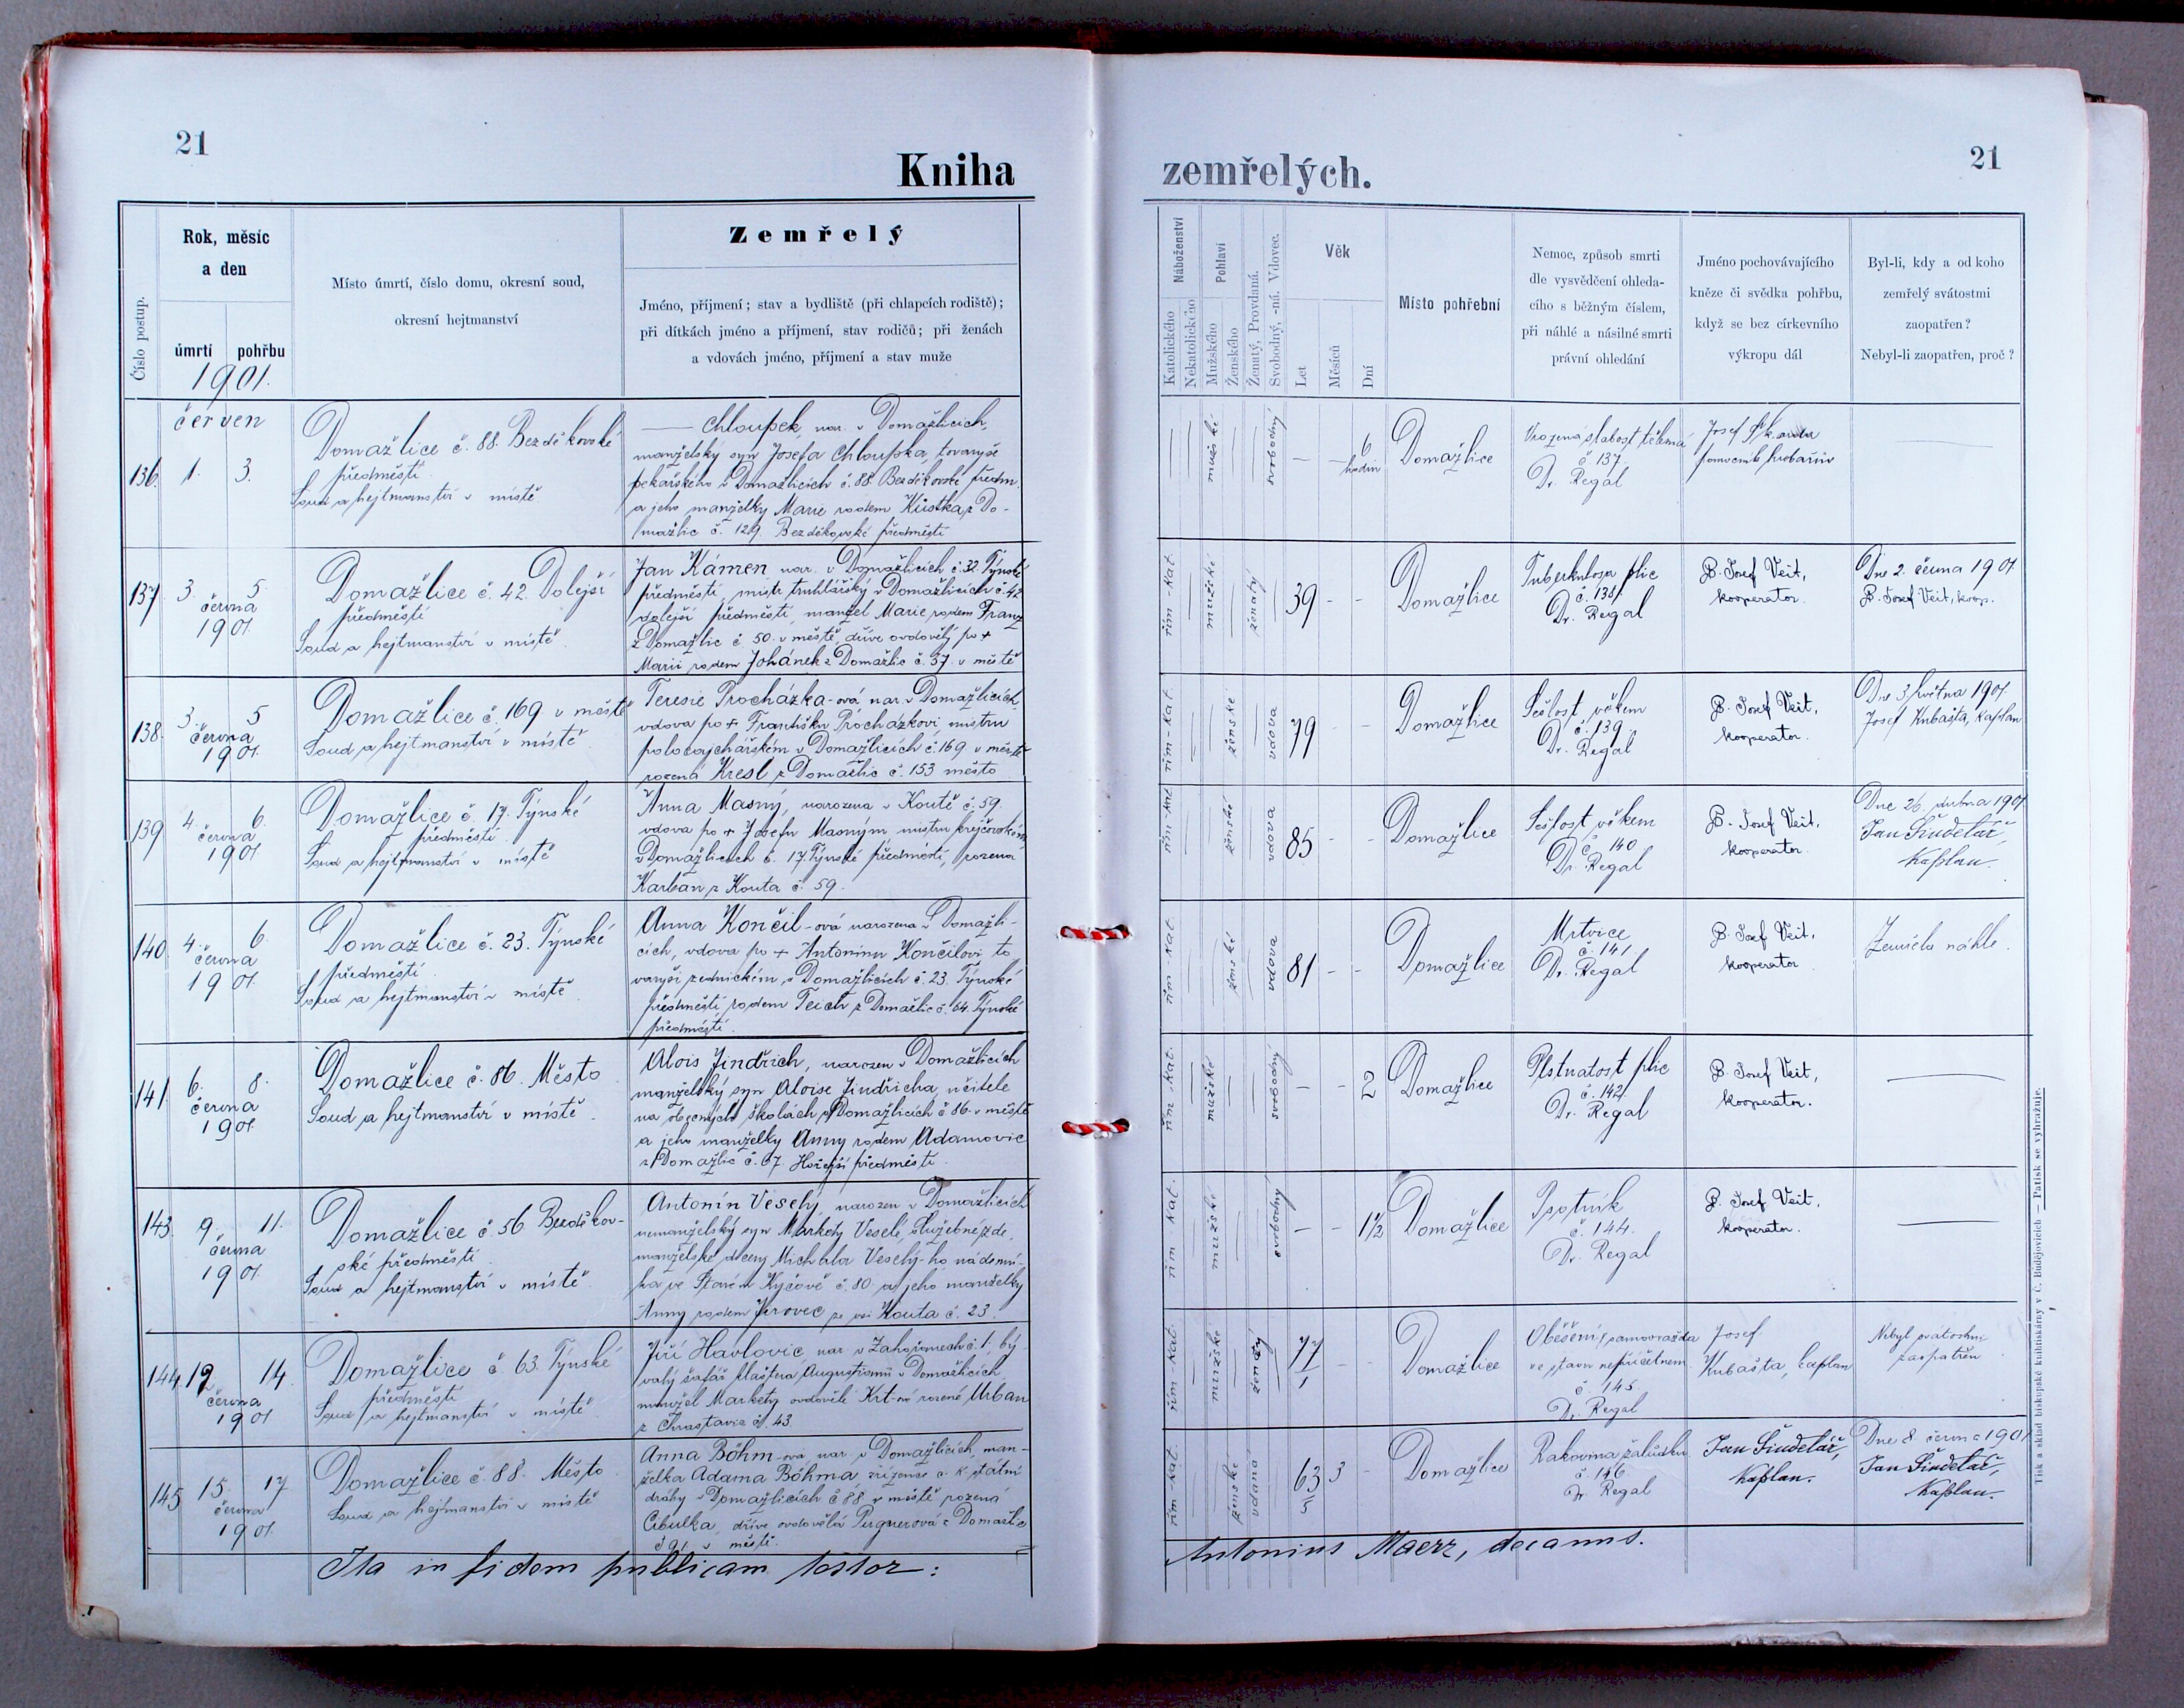 21
Kniha
Číslo postup.
Rok, měsíc
a den
úmrtí
pohřbu
1901.
Místo úmrtí, číslo domu, okresní soud,
okresní hejtmanství
Zemřelý
Jméno, příjmení; stav a bydliště (při chlapcích rodiště);
při dítkách jméno a příjmení, stav rodičů; při ženách
a vdovách jméno, příjmení a stav muže
červen
136. 1. 3.
Domažlice č. 88. Bezděkovské
předměstí.
Soud a hejtmanství v místě
— Chloupek, nar. v Domažlicích,
manželský syn Josefa Chloupka, tovaryše
pekařského v Domažlicích č. 88 Bezděkovské předm.
a jeho manželky Marie rodem Küstka z Do-
mažlic č. 129. Bezděkovské předměstí
137 3. 5.
června
1901.
Domažlice č. 42. Dolejší
předměstí
Soud a hejtmanství v místě.
Jan Kámen nar. v Domažlicích č. 32 Týnské
předměstí, mistr truhlářský v Domažlicích č. 42
dolejší předměstí, manžel Marie rodem Franz
z Domažlic č. 50. v městě, dříve ovdovělý po +
Marii rodem Johánek z Domažlic č. 37. v městě
138. 3. 5
června
1901.
Domažlice č. 169. v městě
Soud a hejtmanství v místě.
Teresie Procházka-ová nar. v Domažlicích,
vdova po + Františku Procházkovi, mistru
v Domažlicích č. 169 v městě
rozená Kresl z Domažlic č. 153 město
139 4. 6.
června
1901
Domažlice č. 17. Týnské
předměstí.
Soud a hejtmanství v místě
Anna Masný, narozena v Koutě č. 59.
vdova po + Josefu Masným mistru krejčovském
v Domažlicích č. 17. Týnské předměstí, rozená
Karban z Kouta č. 59.
140. 4. 6.
června
1901.
Domažlice č. 23. Týnské
předměstí.
Soud a hejtmanství v místě
Anna Končil-ová narozena v Domažli-
cích, vdova po + Antonínu Končilovi to
varyši zednickém v Domažlicích č. 23. Týnské
předměstí, rodem Teich z Domažlic č. 64. Týnské
předměstí.
141. 6. 8.
června
1901.
Domažlice č. 86. Město
Soud a hejtmanství v místě.
Alois Jindřich, narozen v Domažlicích
manželský syn Aloise Jindřicha, učitele
na obecných školách v Domažlicích č 86. v městě
a jeho manželky Anny rodem Adamovic
z Domažlic č. 67. Hořejší předměstí.
143. 9. 11.
června
1901.
Domažlice č. 56 Bezděkov-
ské předměstí.
Soud a hejtmanství v místě.
Antonín Veselý, narozen v Domažlicích
nemanželský syn Markety Veselé, služebné zde,
manželské dcery Michala Veselý-ho nádenní-
ka ve Starém Kyčově č. 80 a jeho manželky
Anny rodem Jerovec ze vsi Kouta č. 23.
144 12 14.
června
1901
Domažlice č 63. Týnské
předměstí
Soud a hejtmanství v místě.
Jiří Havlovic nar v Zahořanech č. 1, bý-
valý šafář kláštera Augustianů v Domažlicích,
manžel Markety ovdovělé Krt-ové rozené Urban
z Chrastavic č. 43.
145 15. 17
června
1901.
Domažlice č. 88. Město
Soud a hejtmanství v místě
Anna Böhm-ová nar. v Domažlicích, man-
želka Adama Böhma zřízence c. k. státní
dráhy v Domažlicích č 88 v městě rozená
Cibulka, dříve ovdovělá Pergnerová z Domažlic
č 91 v městě.
Ita in fidem publicam testor:
zemřelých.
21
Náboženství
Katolického
Nekatolického
Pohlaví
Mužského
Ženského
Ženatý, Provdaná.
Svobodný, -ná. Vdovec.
Věk
Let
Měsíců
Dní
Místo pohřební
Nemoc, způsob smrti
dle vysvědčení ohleda-
cího s běžným číslem,
při náhlé a násilné smrti
právní ohledání
Jméno pochovávajícího
kněze či svědka pohřbu,
když se bez církevního
výkropu dál
Byl-li, kdy a od koho
zemřelý svátostmi
zaopatřen?
Nebyl-li zaopatřen, proč?
mužské svobodný — 6 hodin
Domažlice
Vrozená slabost tělesná
č 137
Dr. Regal
Josef Skala
pomocník hrobařův
řím-kat. mužské ženatý 39 - -
Domažlice
Tuberkulosa plic
č. 138.
Dr. Regal
P. Josef Veit,
kooperator.
Dne 2. června 1901
P. Josef Veit, koop.
řím-kat. ženské vdova 79 - -
Domažlice
Sešlost věkem
č. 139.
Dr. Regal
P. Josef Veit,
kooperator.
Dne 3. května 1901.
Josef Kubašta, kaplan
řím-kat ženské vdova 85 - -
Domažlice
Sešlost věkem
č. 140
Dr. Regal
P. Josef Veit,
kooperator.
Dne 26. dubna 1901
Jan Šindelář,
kaplan.
řím-kat. ženské vdova 81 - -
Domažlice
Mrtvice
č. 141
Dr. Regal
P. Josef Veit,
kooperator
Zemřela náhle.
řím-kat. mužské svobodný — - 2
Domažlice
č. 142.
Dr. Regal
P. Josef Veit,
kooperator.
řím-kat. mužské svobodný — - 1½
Domažlice
Psotník
č. 144.
Dr. Regal
P. Josef Veit,
kooperator.
řím-kat. mužské ženatý 77 - -
Domažlice
Oběšení, samovražda
ve stavu nepříčetnem
č. 145
Dr. Regal
Josef
Kubašta, kaplan
Nebyl svátostmi
zaopatřen
řím-kat. ženské vdaná 63 3 -
Domažlice
Rakovina žaludku
č 146
Dr. Regal
Jan Šindelář,
kaplan.
Dne 8. června 1901
Jan Šindelář,
kaplan.
Antonius Maerz, decanus.
Tisk a sklad biskupské knihtiskárny v Č. Budějovicích — Patisk se vyhražuje.